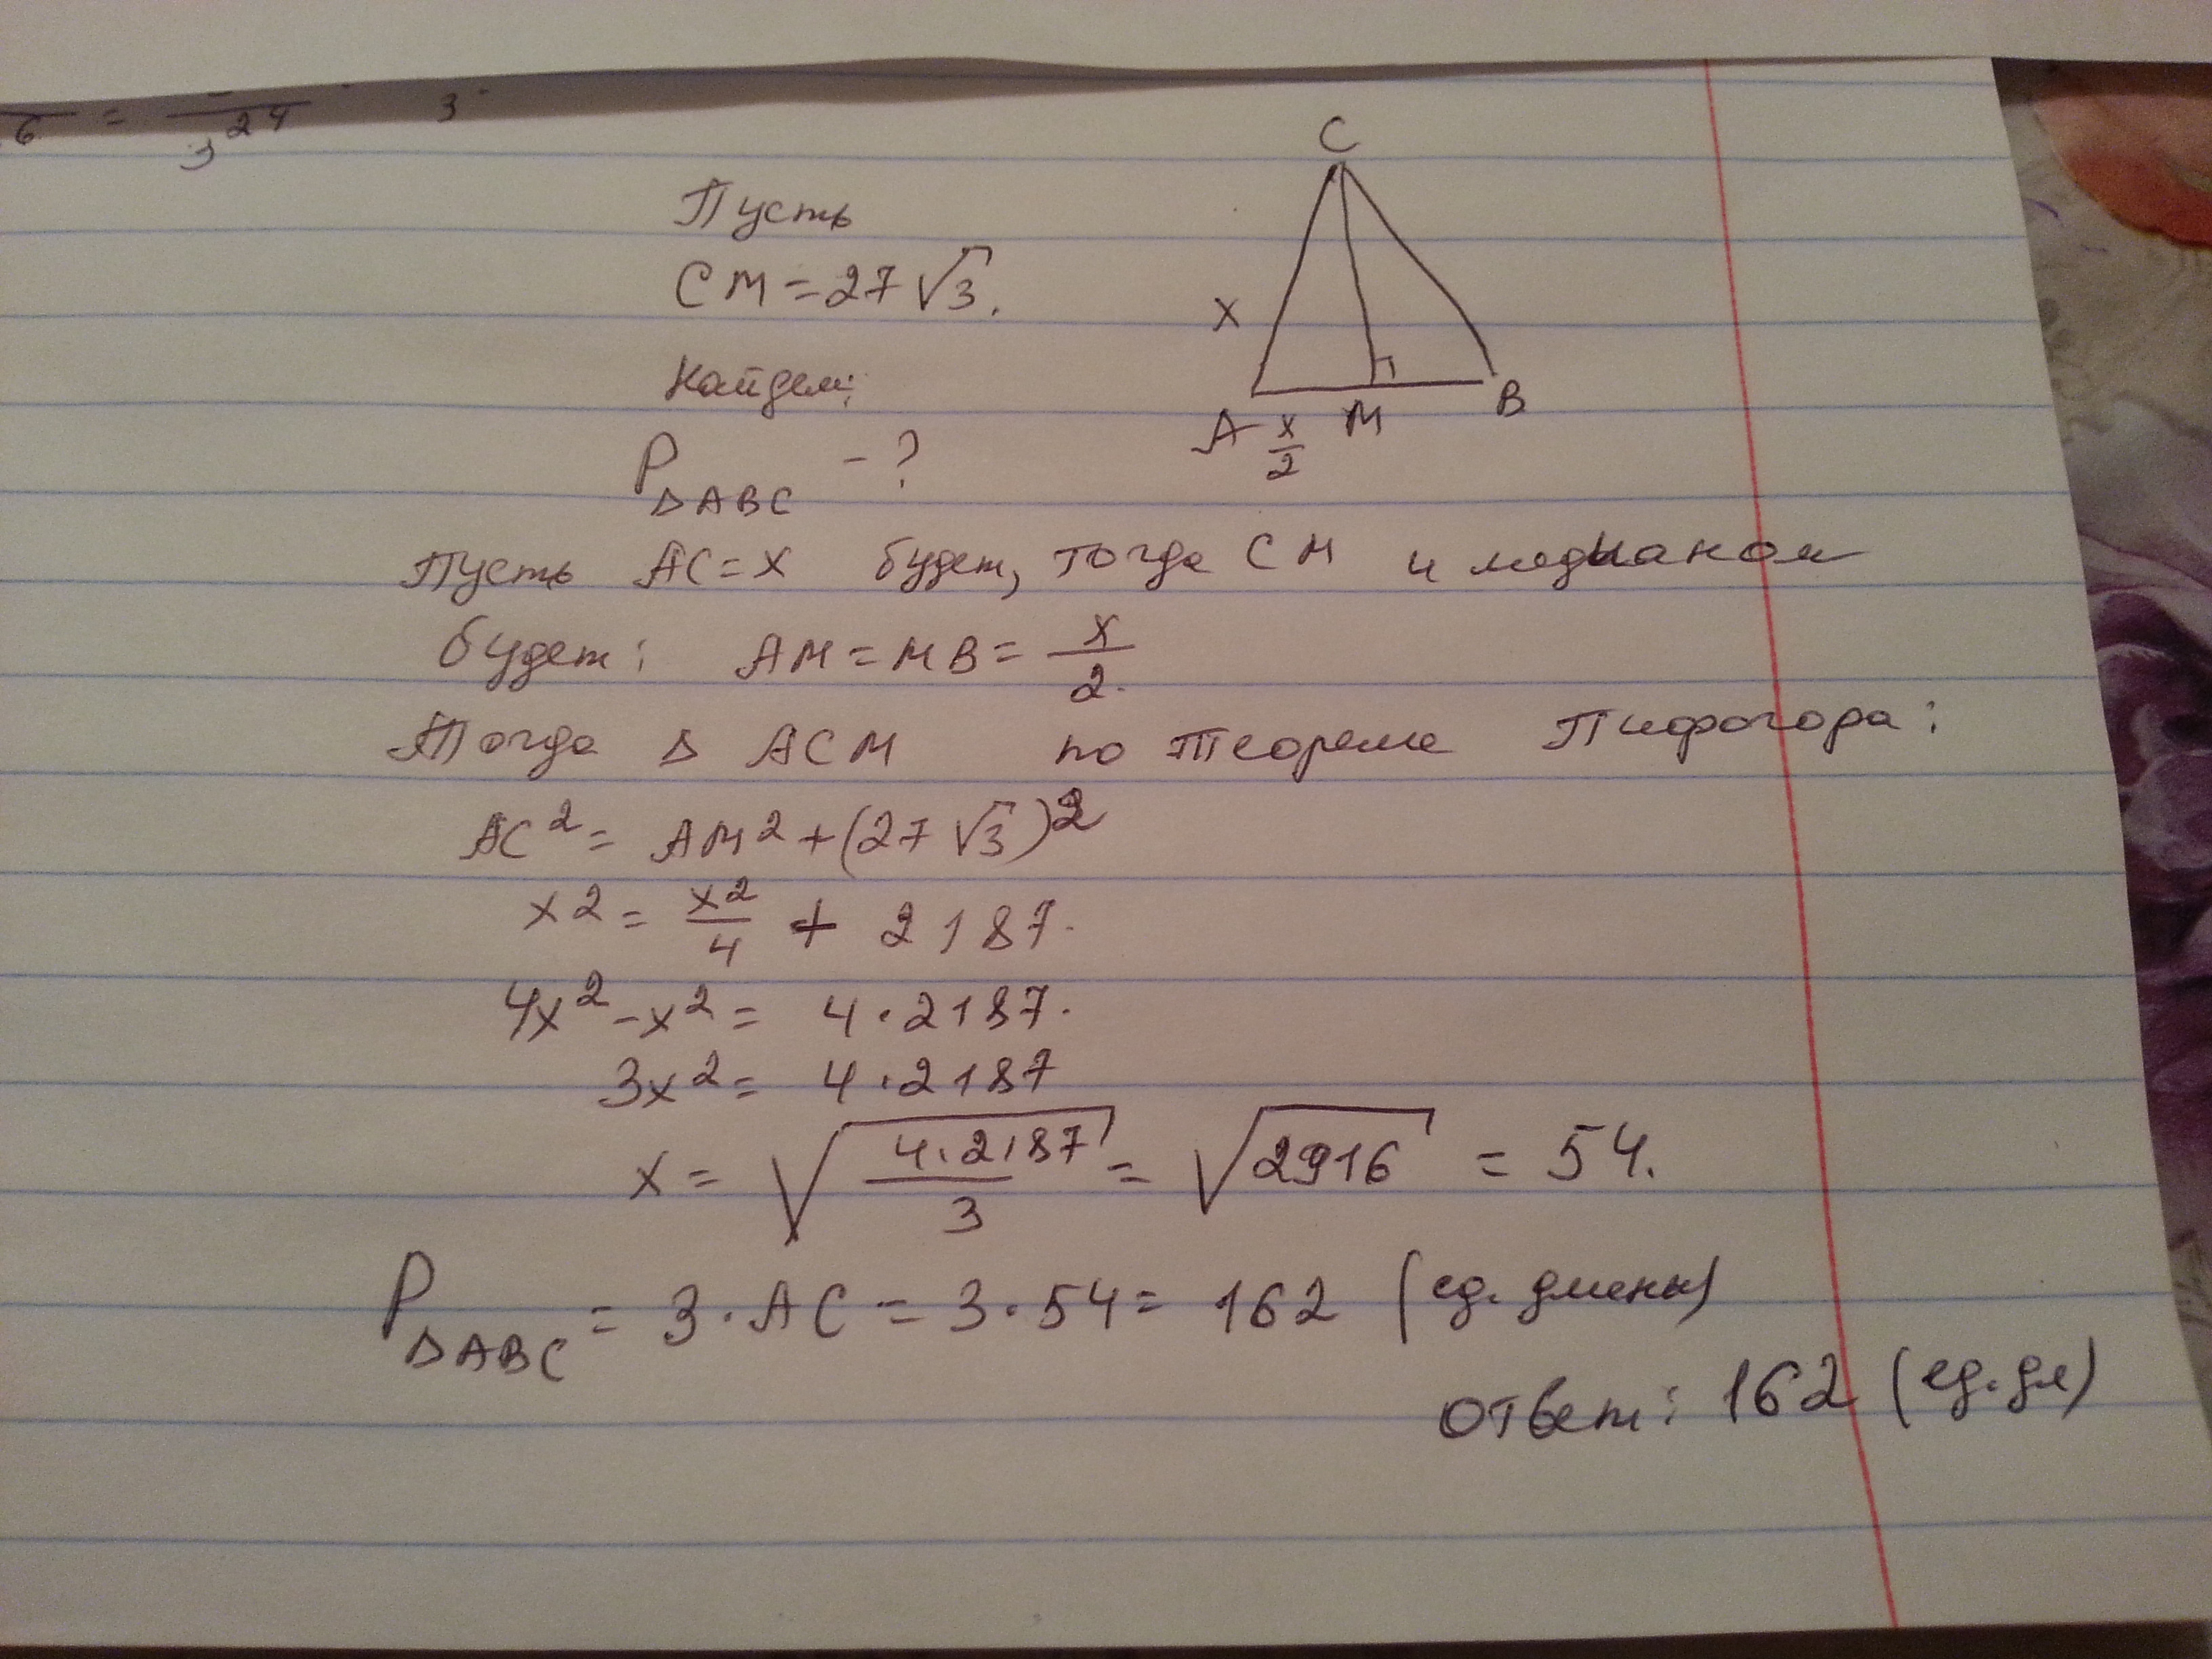 6 = 3^24 3
C
Пусть
CM = 27√3.
x
Найдем:
A x/2 M B
P ΔABC - ?
Пусть AC = x будет, тогда CM и медианом
будет: AM = MB = x/2.
Тогда Δ ACM по теореме Пифогора:
AC² = AM² + (27√3)²
x² = x²/4 + 2187.
4x² - x² = 4·2187.
3x² = 4·2187
x = √(4·2187/3) = √2916 = 54.
P ΔABC = 3·AC = 3·54 = 162 (ед. длены)
Ответ: 162 (ед. дл)